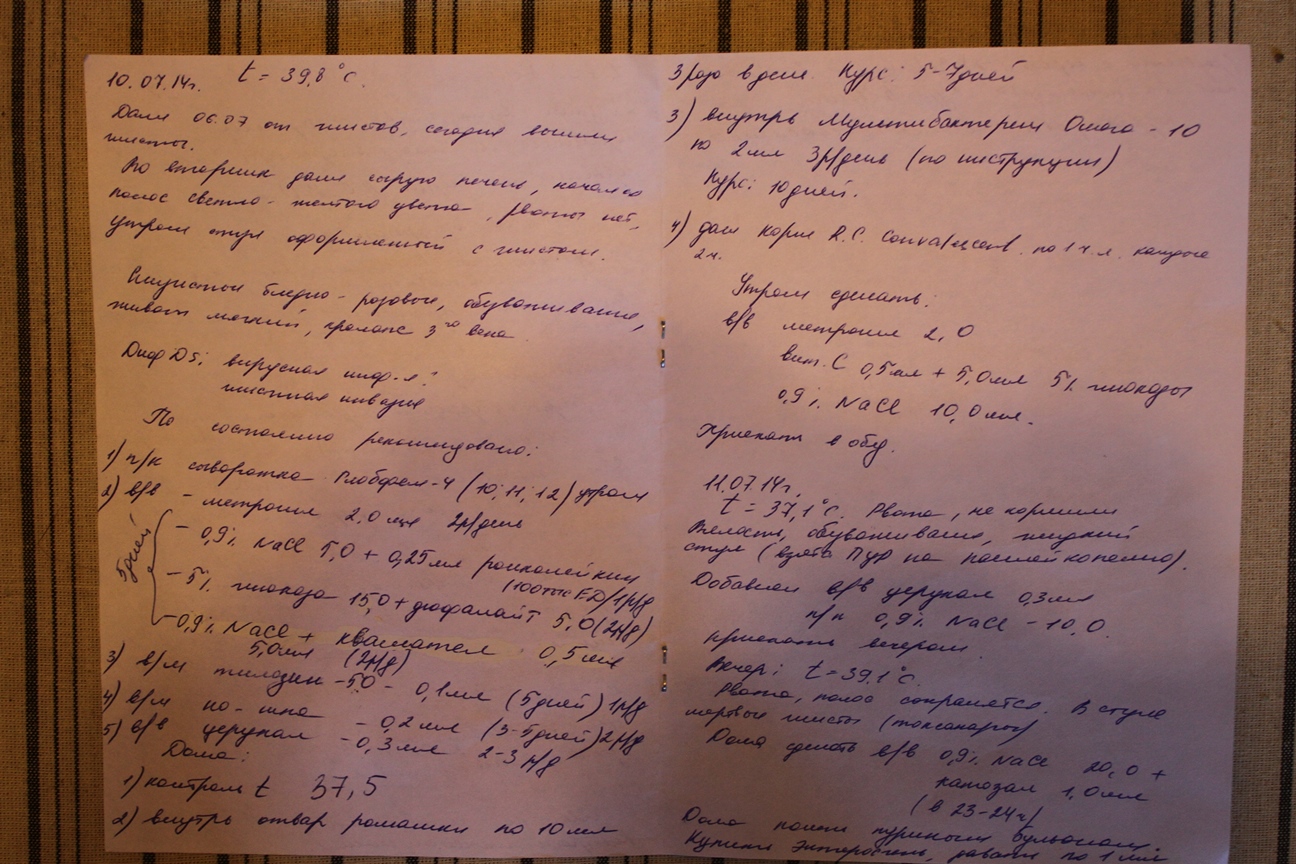 10.07.14г. t = 39,8°C.
Дали 06.07 от глистов, сегодня вышли
глисты.
Во вторник дали сырую печень, начался
понос светло-желтого цвета, рвоты нет,
утром стул оформленный с глистом.
Слизистые бледно-розовые, обезвоживание,
живот мягкий, пролапс 3го века.
Диф DS: вирусная инф-я?
глистная инвазия
По состоянию рекомендовано:
1) п/к сыворотка Глобфел-4 (10, 11, 12) утром
2) в/в - метрогил 2,0 мл 2р/день
5 дней
- 0,9% NaCl 5,0 + 0,25 мл ронколейкин
(100тыс ЕД) 1р/д
- 5% глюкоза 15,0 + дюфалайт 5,0 (2р/д)
- 0,9% NaCl + квамател 0,5 мл
5,0 мл (2р/д)
3) в/м тилозин-50 - 0,1 мл (5 дней) 1р/д
4) в/м но-шпа - 0,2 мл (3-5 дней) 2р/д
5) в/в церукал - 0,3 мл 2-3 р/д
Дома:
1) контроль t 37,5
2) внутрь отвар ромашки по 10 мл
3 раза в день. Курс: 5-7 дней
3) внутрь Мультибактерин Омега-10
по 2 мл 3р/день (по инструкции)
Курс: 10 дней.
4) дали корм R.C. Convalescent по 1 ч.л. каждые
2ч.
Утром сделать:
в/в метрогил 2,0
вит. C 0,5 мл + 5,0 мл 5% глюкозы
0,9% NaCl 10,0 мл.
Приехать в обед.
11.07.14г.
t = 37,1°C. Рвота, не кормили
Вялость, обезвоживание, жидкий
стул (взята ПЦР на панлейкопению).
Добавили в/в церукал 0,3 мл
п/к 0,9% NaCl - 10,0.
приехать вечером.
Вечер: t = 39,1°C.
Рвота, понос сохраняется. В стуле
мертвые глисты (токсокары)
Дома сделать в/в 0,9% NaCl 20,0 +
катозал 1,0 мл
(в 23-24ч)
Дома поить куриным бульоном
Купить Энтеросгель, давать по 1 мл